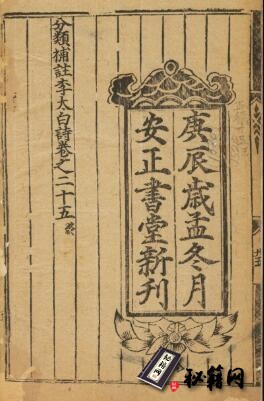 庚辰歲孟冬月
安正書堂新刊
分類補註李太白詩卷之二十五終
秘籍网
秘籍网